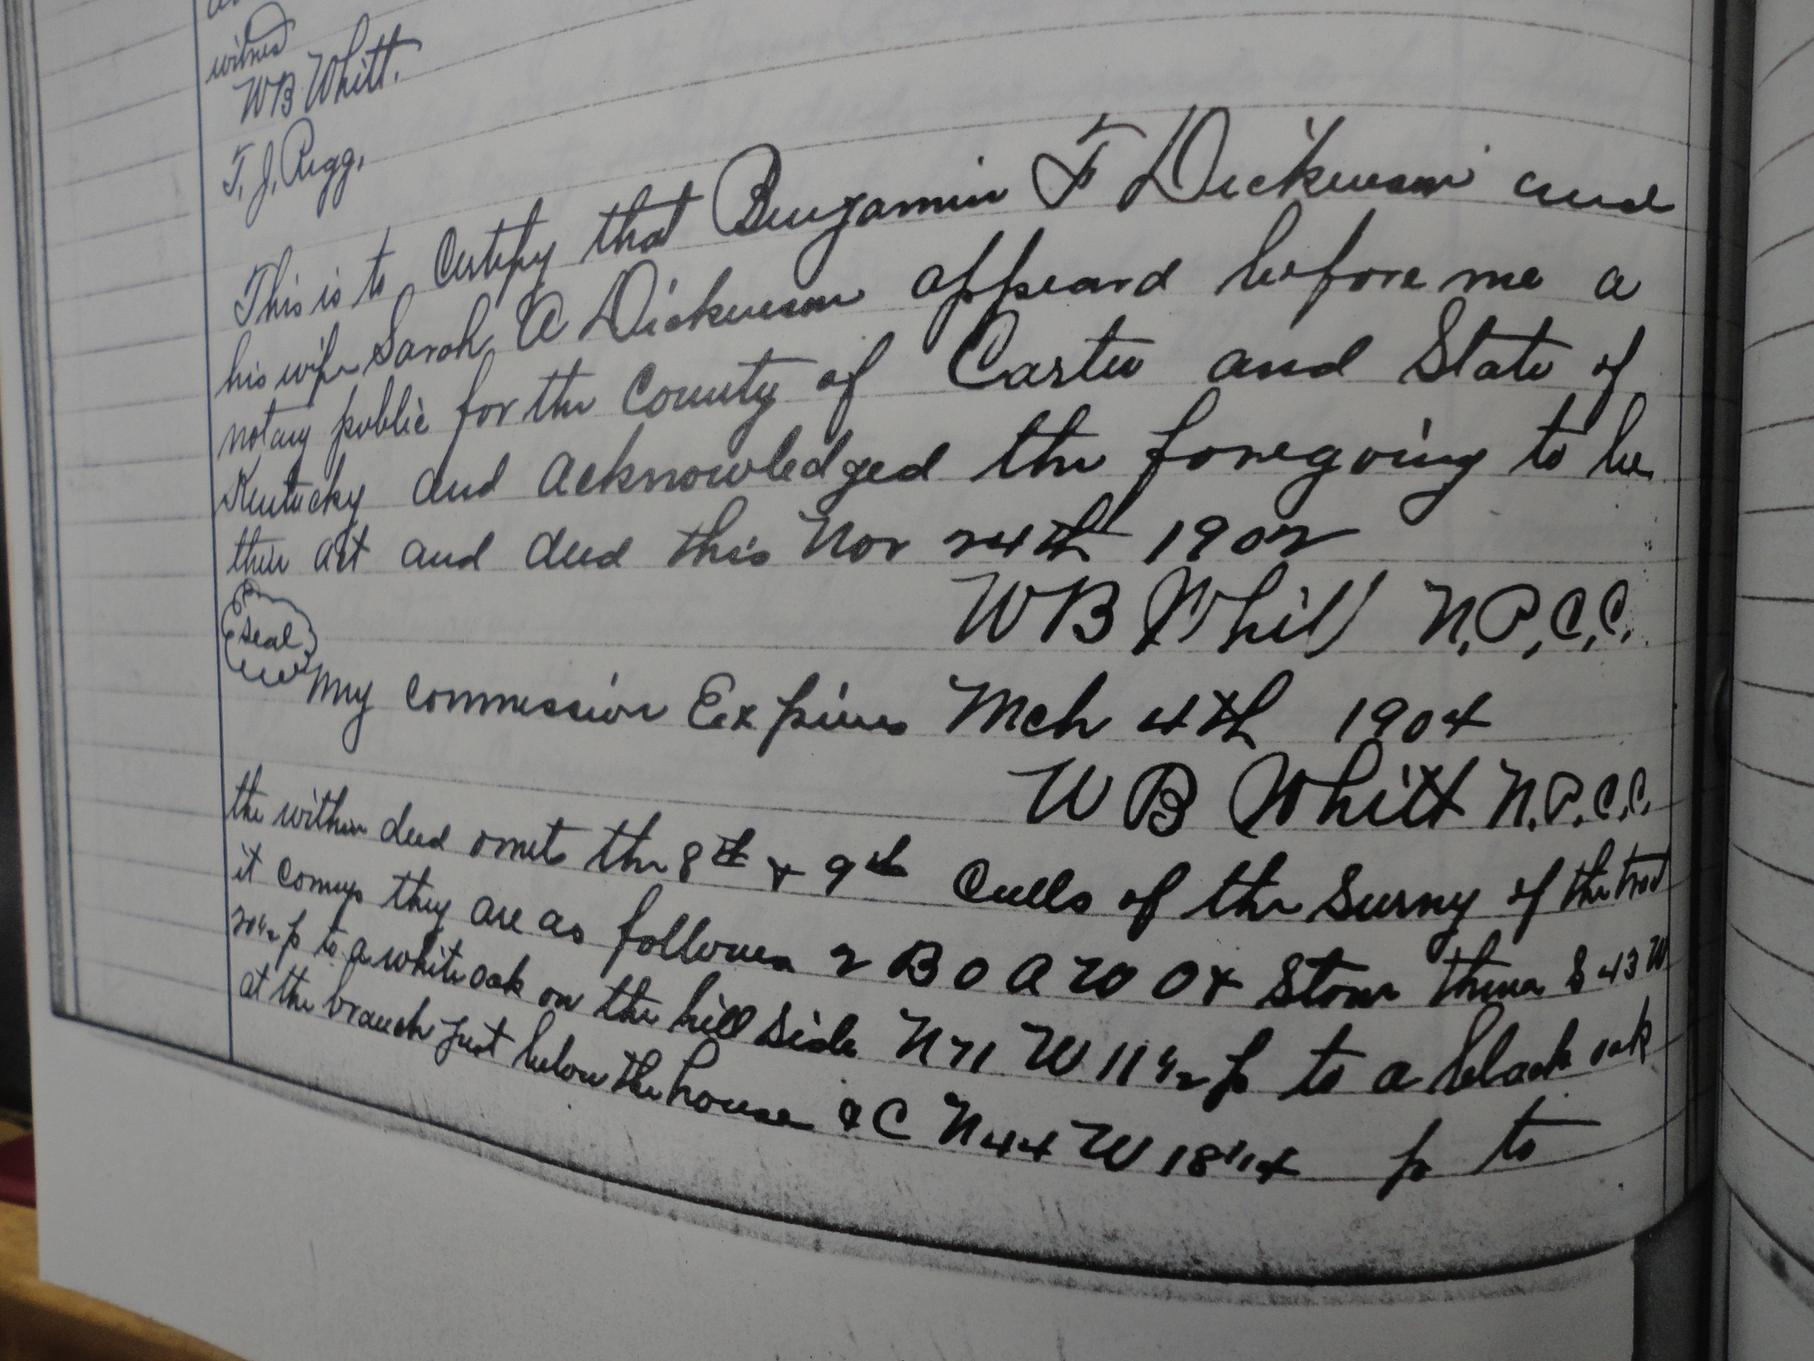 witness
WB Whitt.
T. J. Rigg.
This is to Certify that Benjamin F Dickerson and
his wife Sarah A Dickerson appeard before me a
notary public for the County of Carter and State of
Kentucky and acknowledged the foregoing to be
their act and deed this Nov 24th 1902
WB Whitt N.P.C.C.
Seal
My commission Expires Mch 4th 1904
W B Whitt N.P.C.C.
the within deed omits the 8th & 9th Calls of the Survey of the tract
it conveys they are as follows 2 B O A W O & Stone thence S 43 W
20 1/2 p to a white oak on the hill side N 71 W 11 1/2 p to a black oak
at the branch just below the house &C N 44 W 18 1/4 p to